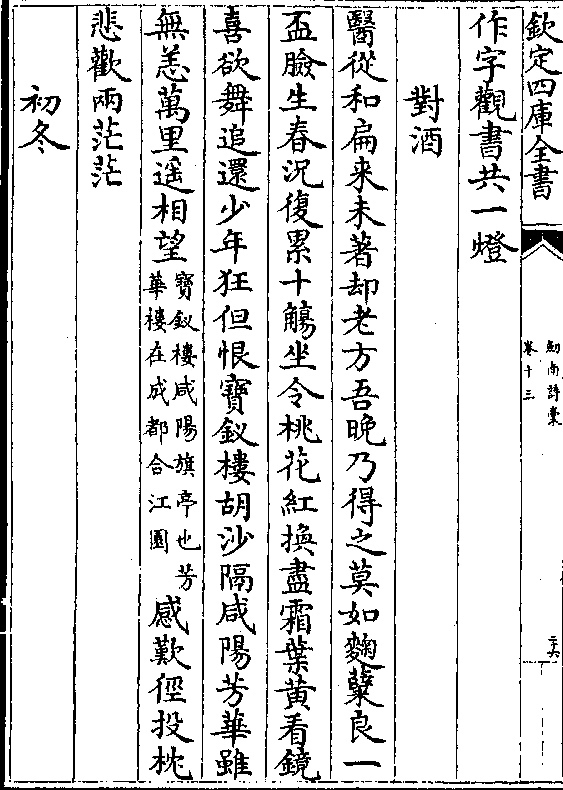 欽定四庫全書
劒南詩稾
卷十三
二十六
作字觀書共一燈
對酒
醫從和扁来未著却老方吾晚乃得之莫如麴糵良一
盃臉生春况復累十觴坐令桃花紅換盡霜葉黄看鏡
喜欲舞追還少年狂但恨寶釵樓胡沙隔咸陽芳華雖
無恙萬里遥相望寶釵樓咸陽旗亭也芳
華樓在成都合江園感歎徑投枕
悲歡兩茫茫
初冬